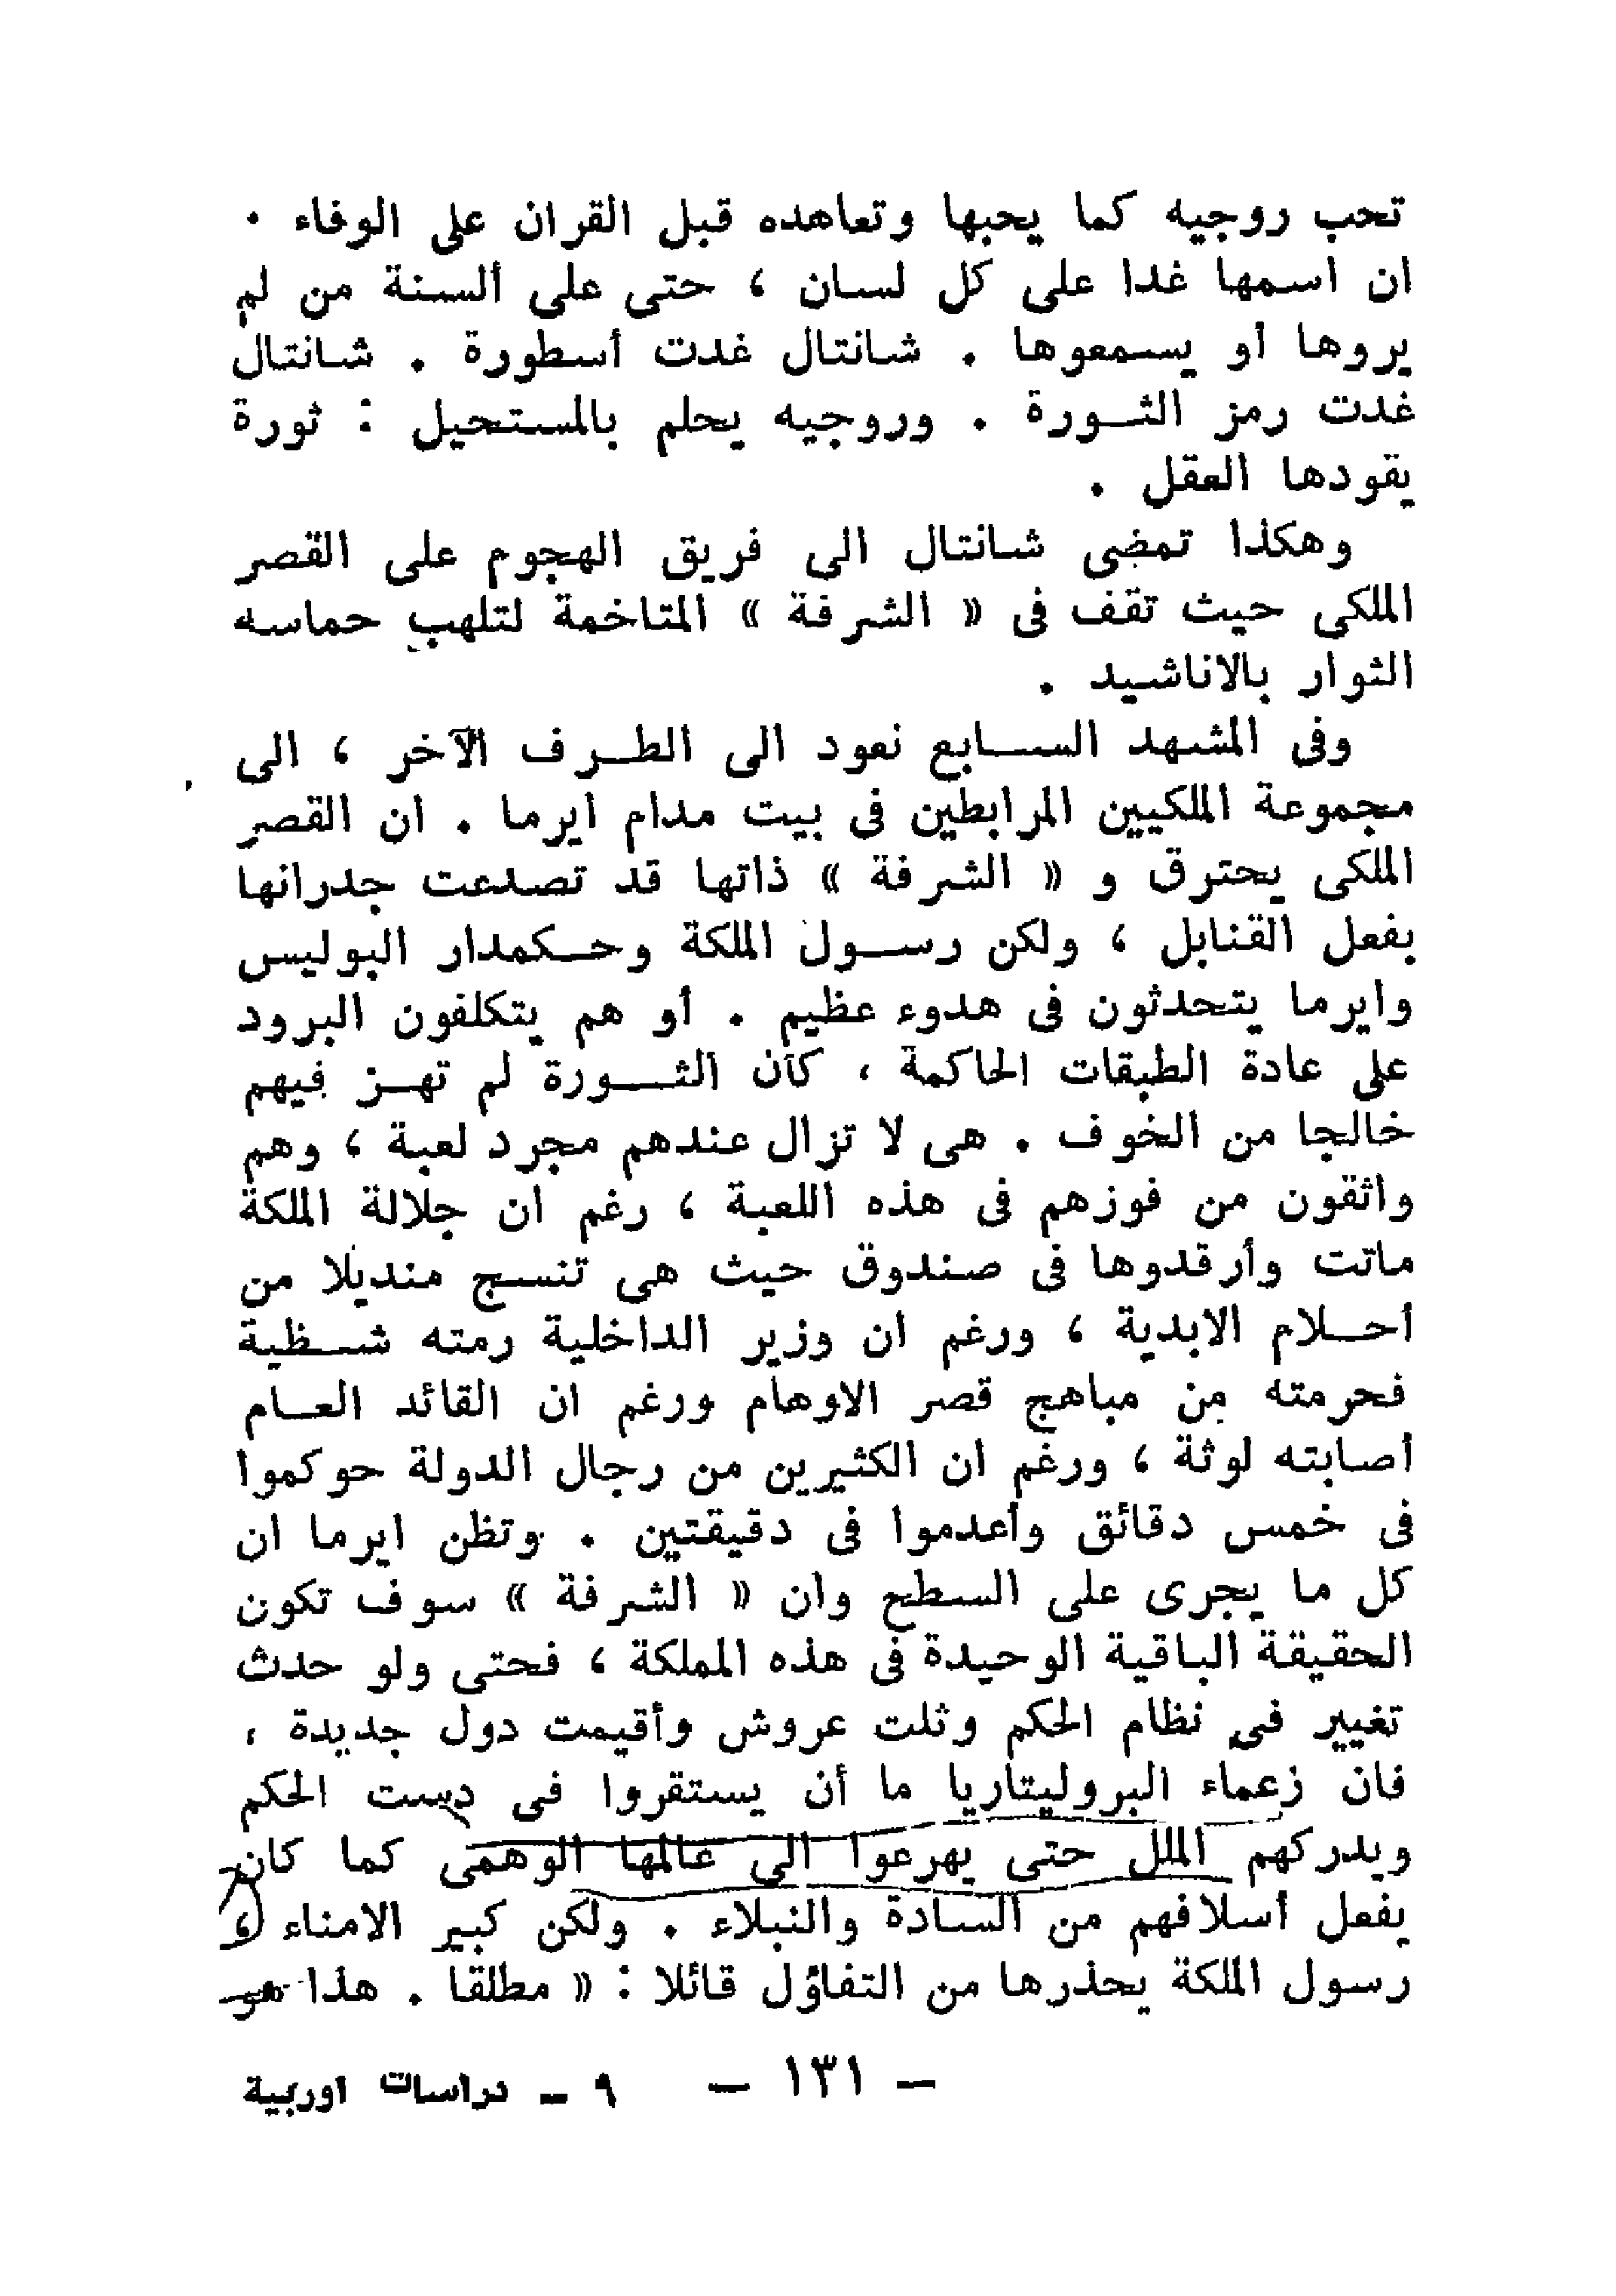 تحب روجيه كما يحبها وتعاهده قبل القران على الوفاء .
ان اسمها غدا على كل لسان ، حتى على ألسنة من لم
يروها أو يسمعوها . شانتال غدت أسطورة . شانتال
غدت رمز الثورة . وروجيه يحلم بالمستحيل : ثورة
يقودها العقل .
وهكذا تمضى شانتال الى فريق الهجوم على القصر
الملكى حيث تقف فى « الشرفة » المتاخمة لتلهب حماسه
الثوار بالاناشيد .
وفى المشهد السابع نعود الى الطرف الآخر ، الى
مجموعة الملكيين المرابطين فى بيت مدام ايرما . ان القصر
الملكى يحترق و « الشرفة » ذاتها قد تصدعت جدرانها
بفعل القنابل ، ولكن رسول الملكة وحكمدار البوليس
وايرما يتحدثون فى هدوء عظيم . أو هم يتكلفون البرود
على عادة الطبقات الحاكمة ، كأن الثورة لم تهز فيهم
خالجا من الخوف . هى لا تزال عندهم مجرد لعبة ، وهم
واثقون من فوزهم فى هذه اللعبة ، رغم ان جلالة الملكة
ماتت وأرقدوها فى صندوق حيث هى تنسج منديلا من
أحلام الابدية ، ورغم ان وزير الداخلية رمته شظية
فحرمته من مباهج قصر الاوهام ورغم ان القائد العام
أصابته لوثة ، ورغم ان الكثيرين من رجال الدولة حوكموا
فى خمس دقائق وأعدموا فى دقيقتين . وتظن ايرما ان
كل ما يجرى على السطح وان « الشرفة » سوف تكون
الحقيقة الباقية الوحيدة فى هذه المملكة ، فحتى ولو حدث
تغيير فى نظام الحكم وثلت عروش وأقيمت دول جديدة ،
فان زعماء البروليتاريا ما أن يستقروا فى دست الحكم
ويدركهم الملل حتى يهرعوا الى عالمها الوهمى كما كان
يفعل أسلافهم من السادة والنبلاء . ولكن كبير الامناء ،
رسول الملكة يحذرها من التفاؤل قائلا : « مطلقا . هذا هو
– ١٣١ –
٩ – دراسات اوربية